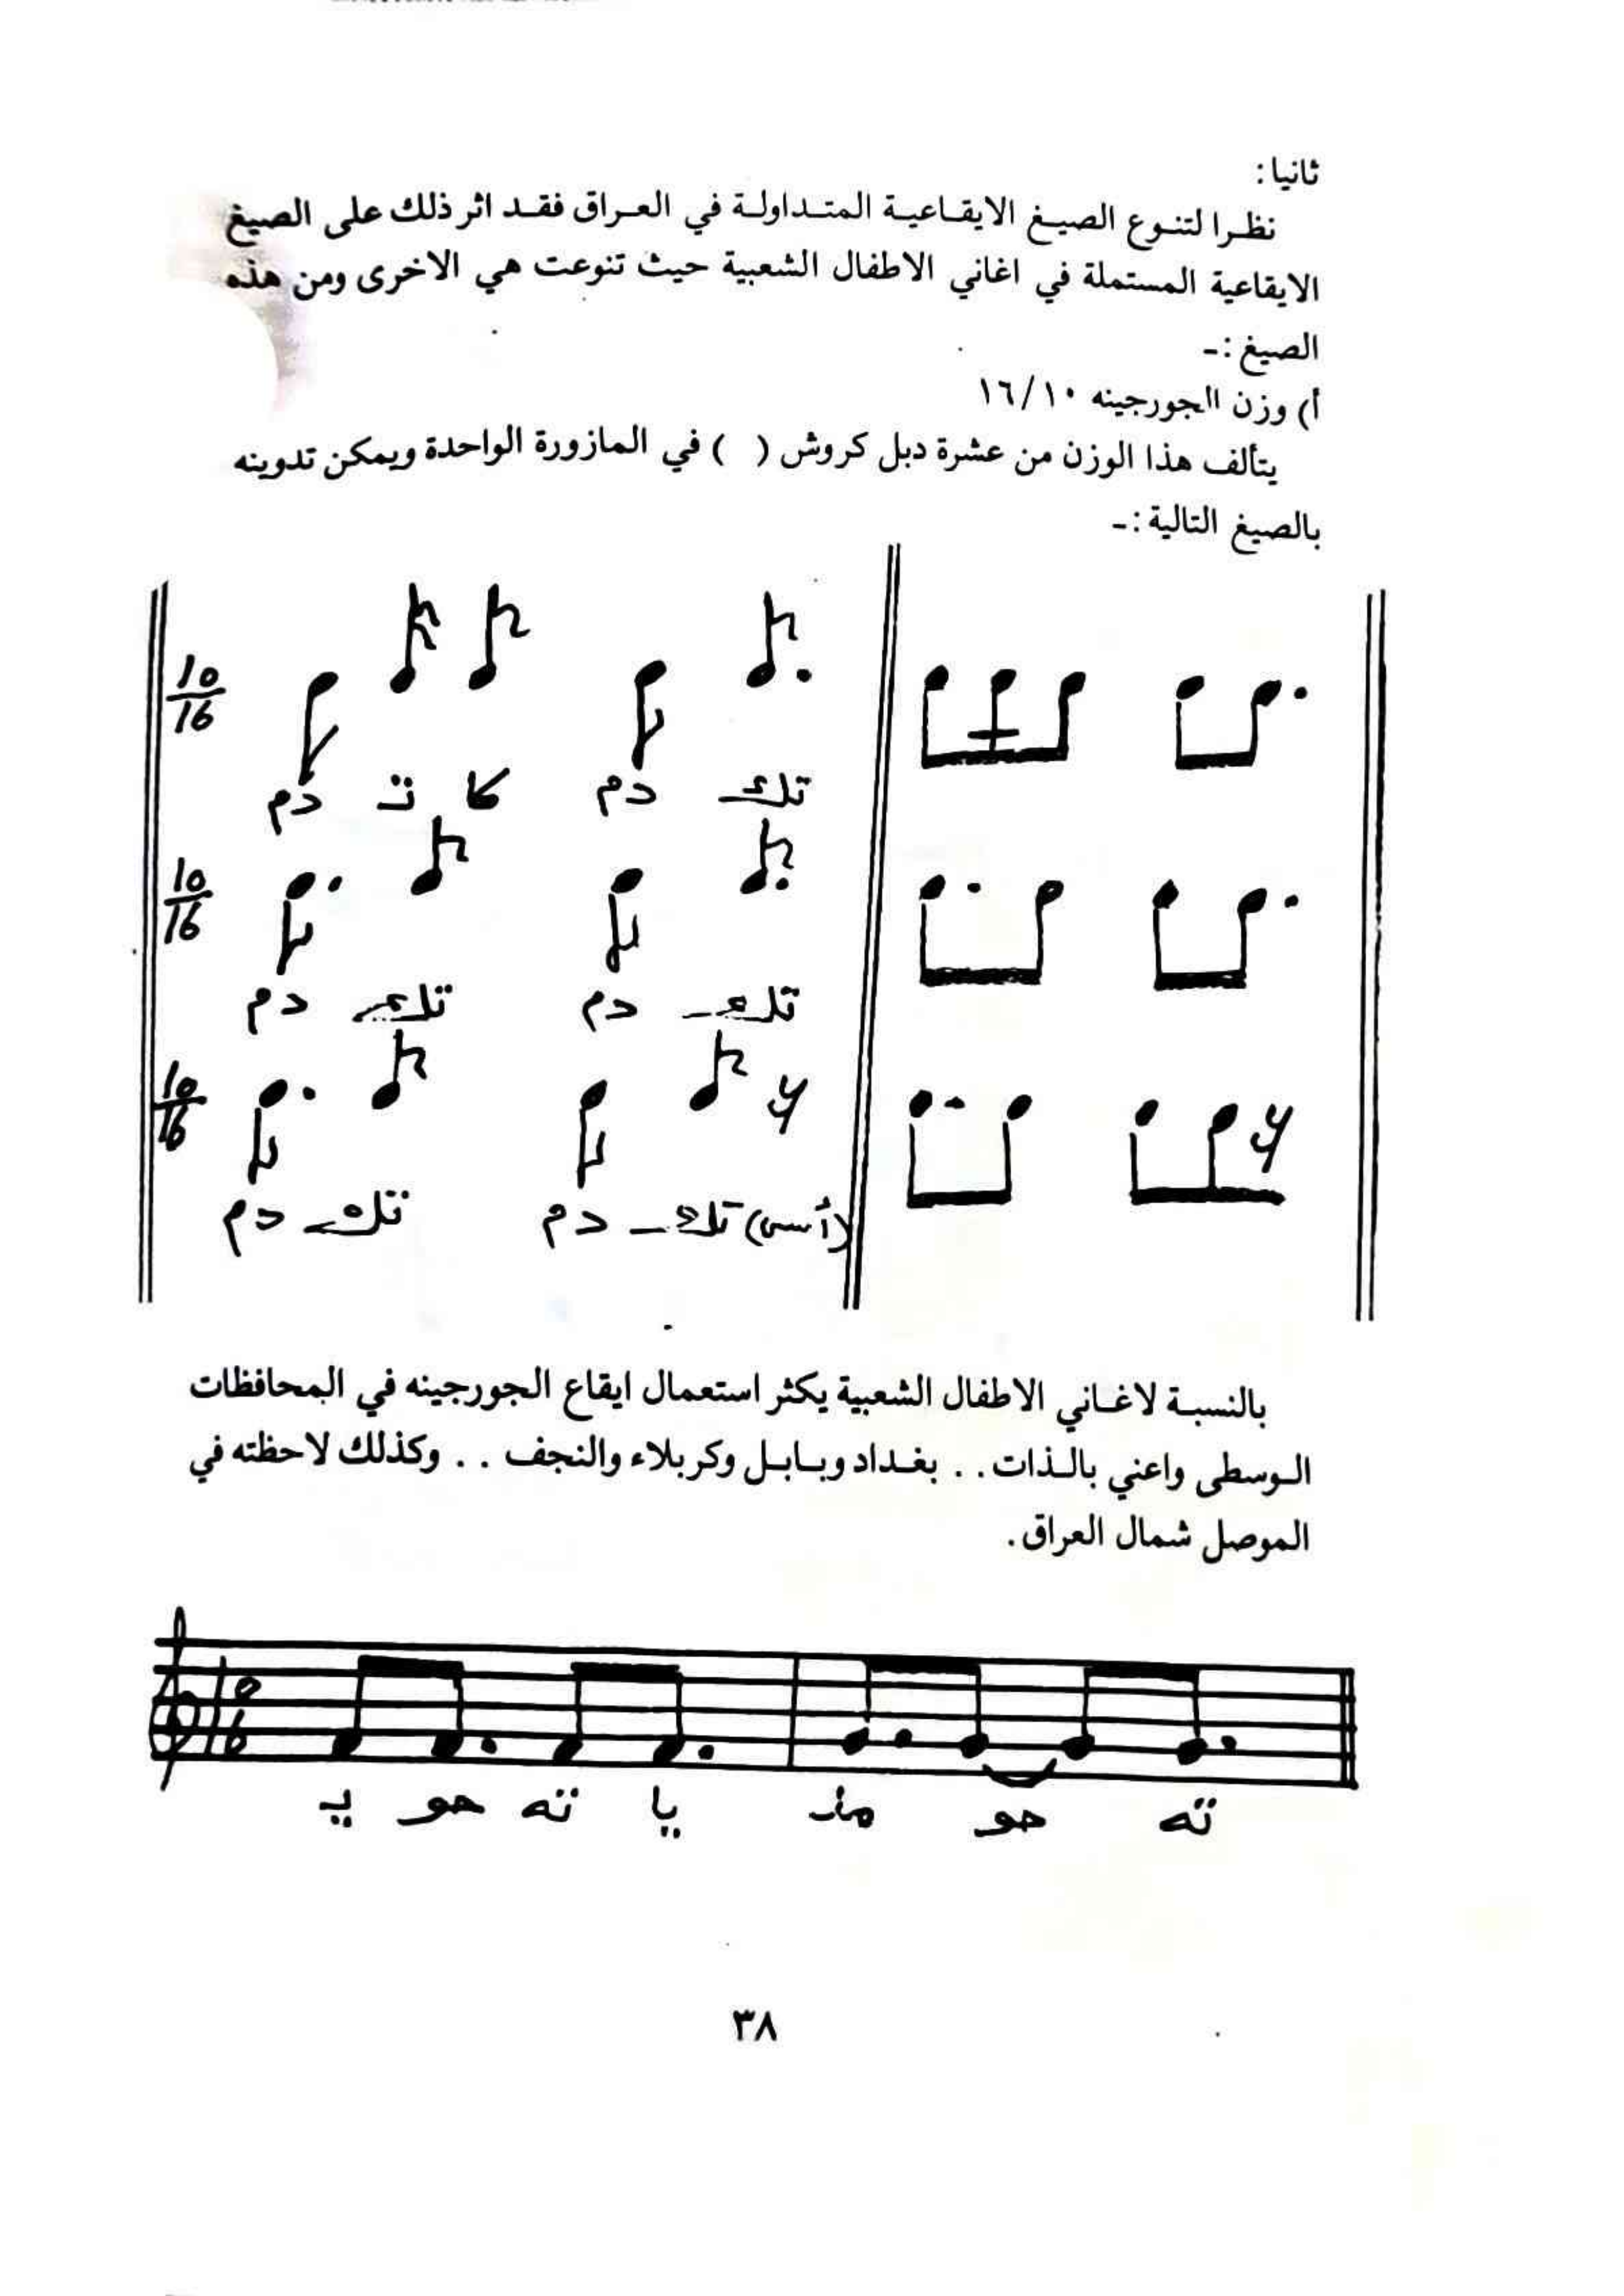 ثانيا:
نظرا لتنوع الصيغ الايقاعية المتداولة في العراق فقد اثر ذلك على الصيغ
الايقاعية المستملة في اغاني الاطفال الشعبية حيث تنوعت هي الاخرى ومن هذه
الصيغ :ـ
أ) وزن الجورجينه ١٦/١٠
يتألف هذا الوزن من عشرة دبل كروش ( ) في المازورة الواحدة ويمكن تدوينه
بالصيغ التالية :ـ
10
16
دم تـ كا دم تك
10
16
دم تك دم تك
10
16
دم تك دم تك (أس)
بالنسبة لاغاني الاطفال الشعبية يكثر استعمال ايقاع الجورجينه في المحافظات
الوسطى واعني بالذات . . بغداد وبابل وكربلاء والنجف . . وكذلك لاحظته في
الموصل شمال العراق .
10
16
يـ حو ته يا مد حو ته
٣٨